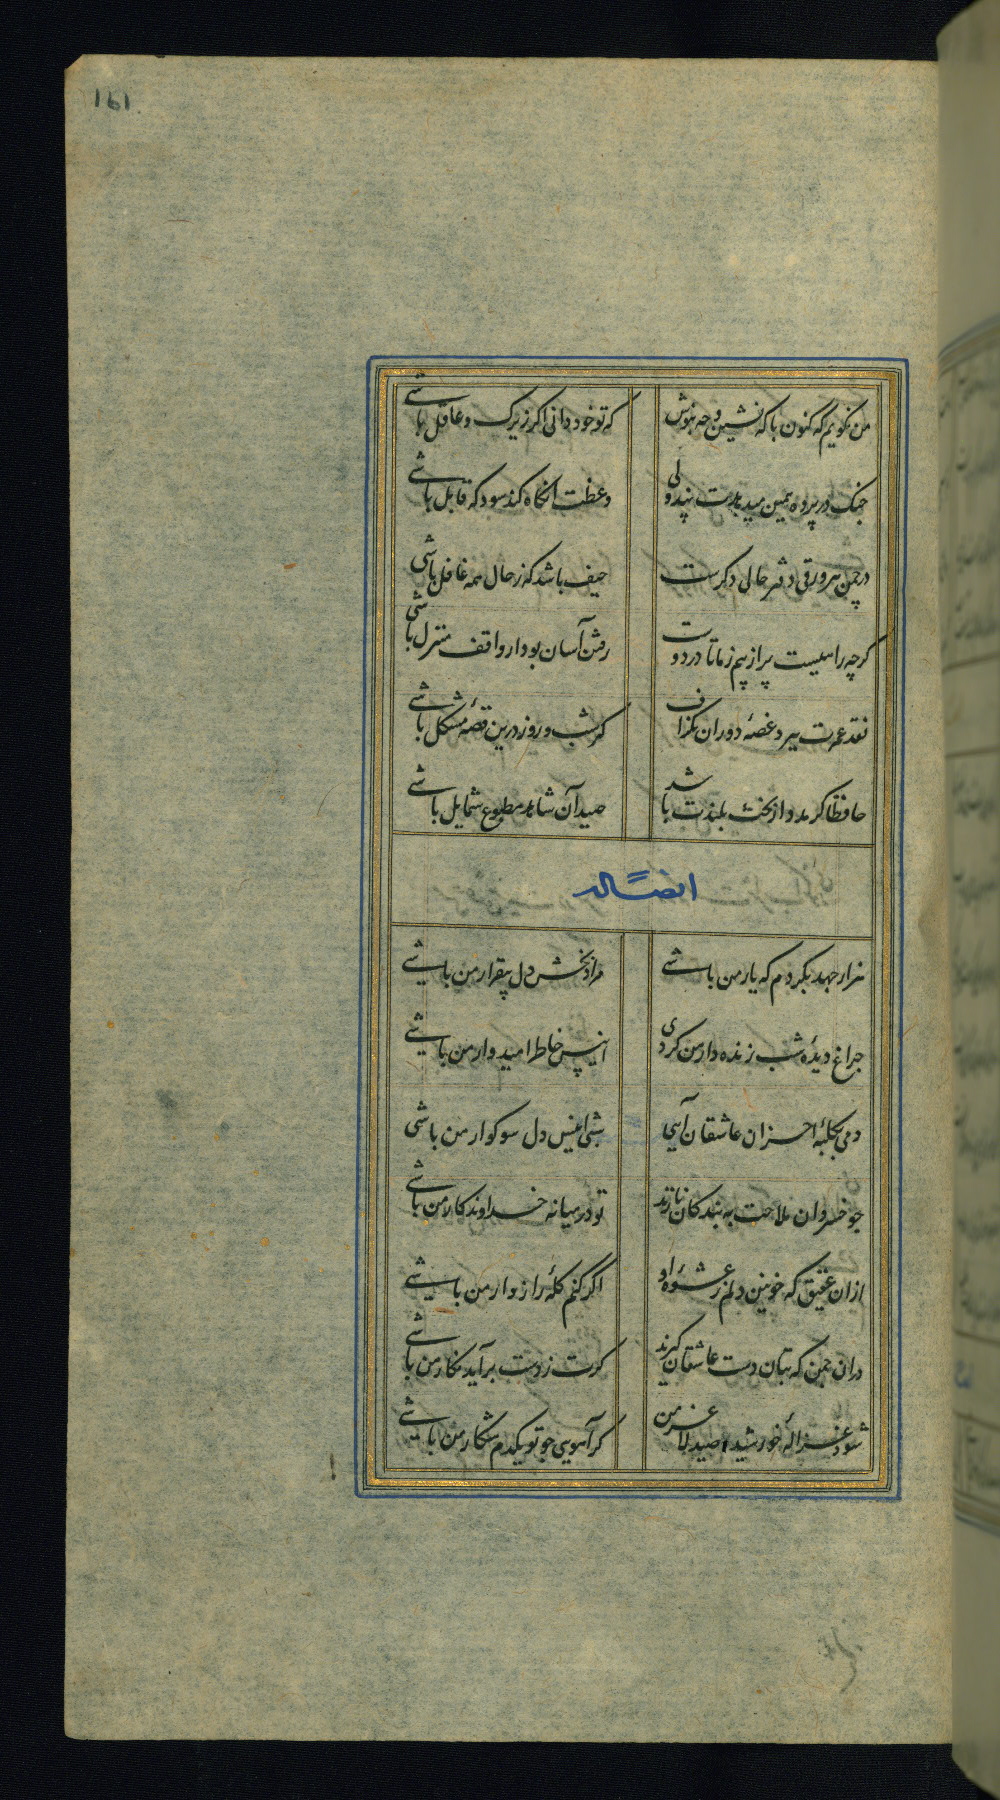 161
من نگویم که کنون با که نشین و چه بنوش که تو خود دانی اگر زیرک و عاقل باشی
چنک در پرده همین میدهدت پند ولی وعظت آنگاه کند سود که قابل باشی
در چمن هر ورقی دفتر حالی دگرست حیف باشد که ز حال همه غافل باشی
گرچه راهیست پر از بیم ز ما تا در دوست رفتن آسان بود ار واقف منزل باشی
نقد عمرت ببرد غصهٔ دوران بگزاف گر شب و روز درین قصهٔ مشکل باشی
حافظا گر مدد از بخت بلندت باشد صید آن شاهد مطبوع شمایل باشی
ایضاً له
هزار جهد بکردم که یار من باشی مراد بخش دل بیقرار من باشی
چراغ دیدهٔ شب زنده دار من کردی انیس خاطر امیدوار من باشی
دمی بکلبهٔ احزان عاشقان آیی شبی انیس دل سوکوار من باشی
چو خسروان ملاحت به بندکان نازند تو در میانه خداوندکار من باشی
ازان عقیق که خونین دلم ز عشوهٔ او اگر کنم کلهٔ رازدار من باشی
دران چمن که بتان دست عاشقان گیرند گرت ز دست برآید نگار من باشی
شود غزالهٔ خورشید صید لاغر من گر آهویی چو تو یکدم شکار من باشی